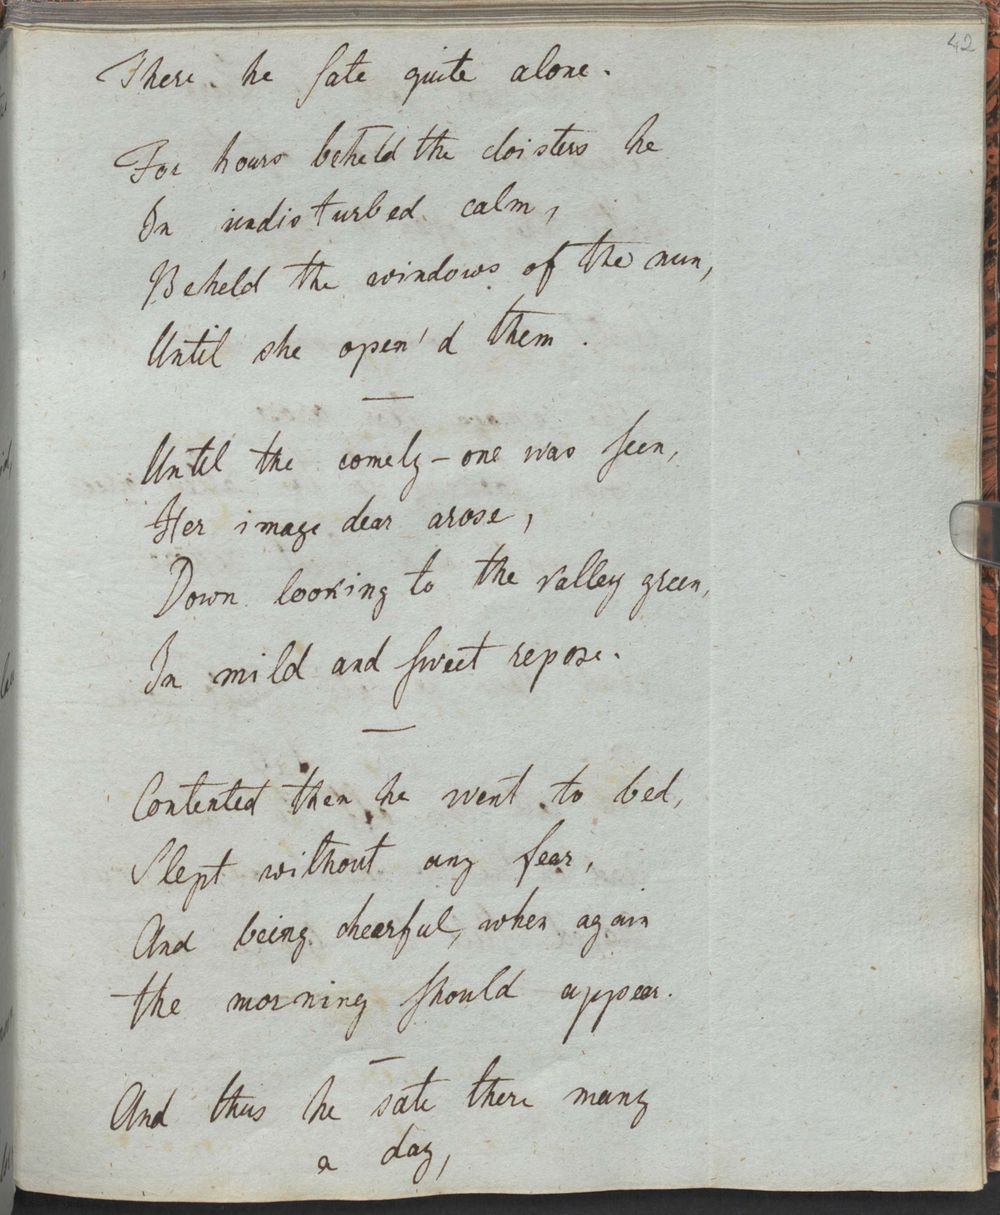 42
There he sate quite alone.
For hours beheld the cloisters he
In undisturbed calm,
Beheld the windows of the nun,
Until she open'd them.
—
Until the comely-one was seen,
Her image dear arose,
Down looking to the valley green,
In mild and sweet repose.
—
Contented then he went to bed,
Slept without any fear,
And being cheerful, when again
the morning should appear.
—
And thus he sate there many
a day,